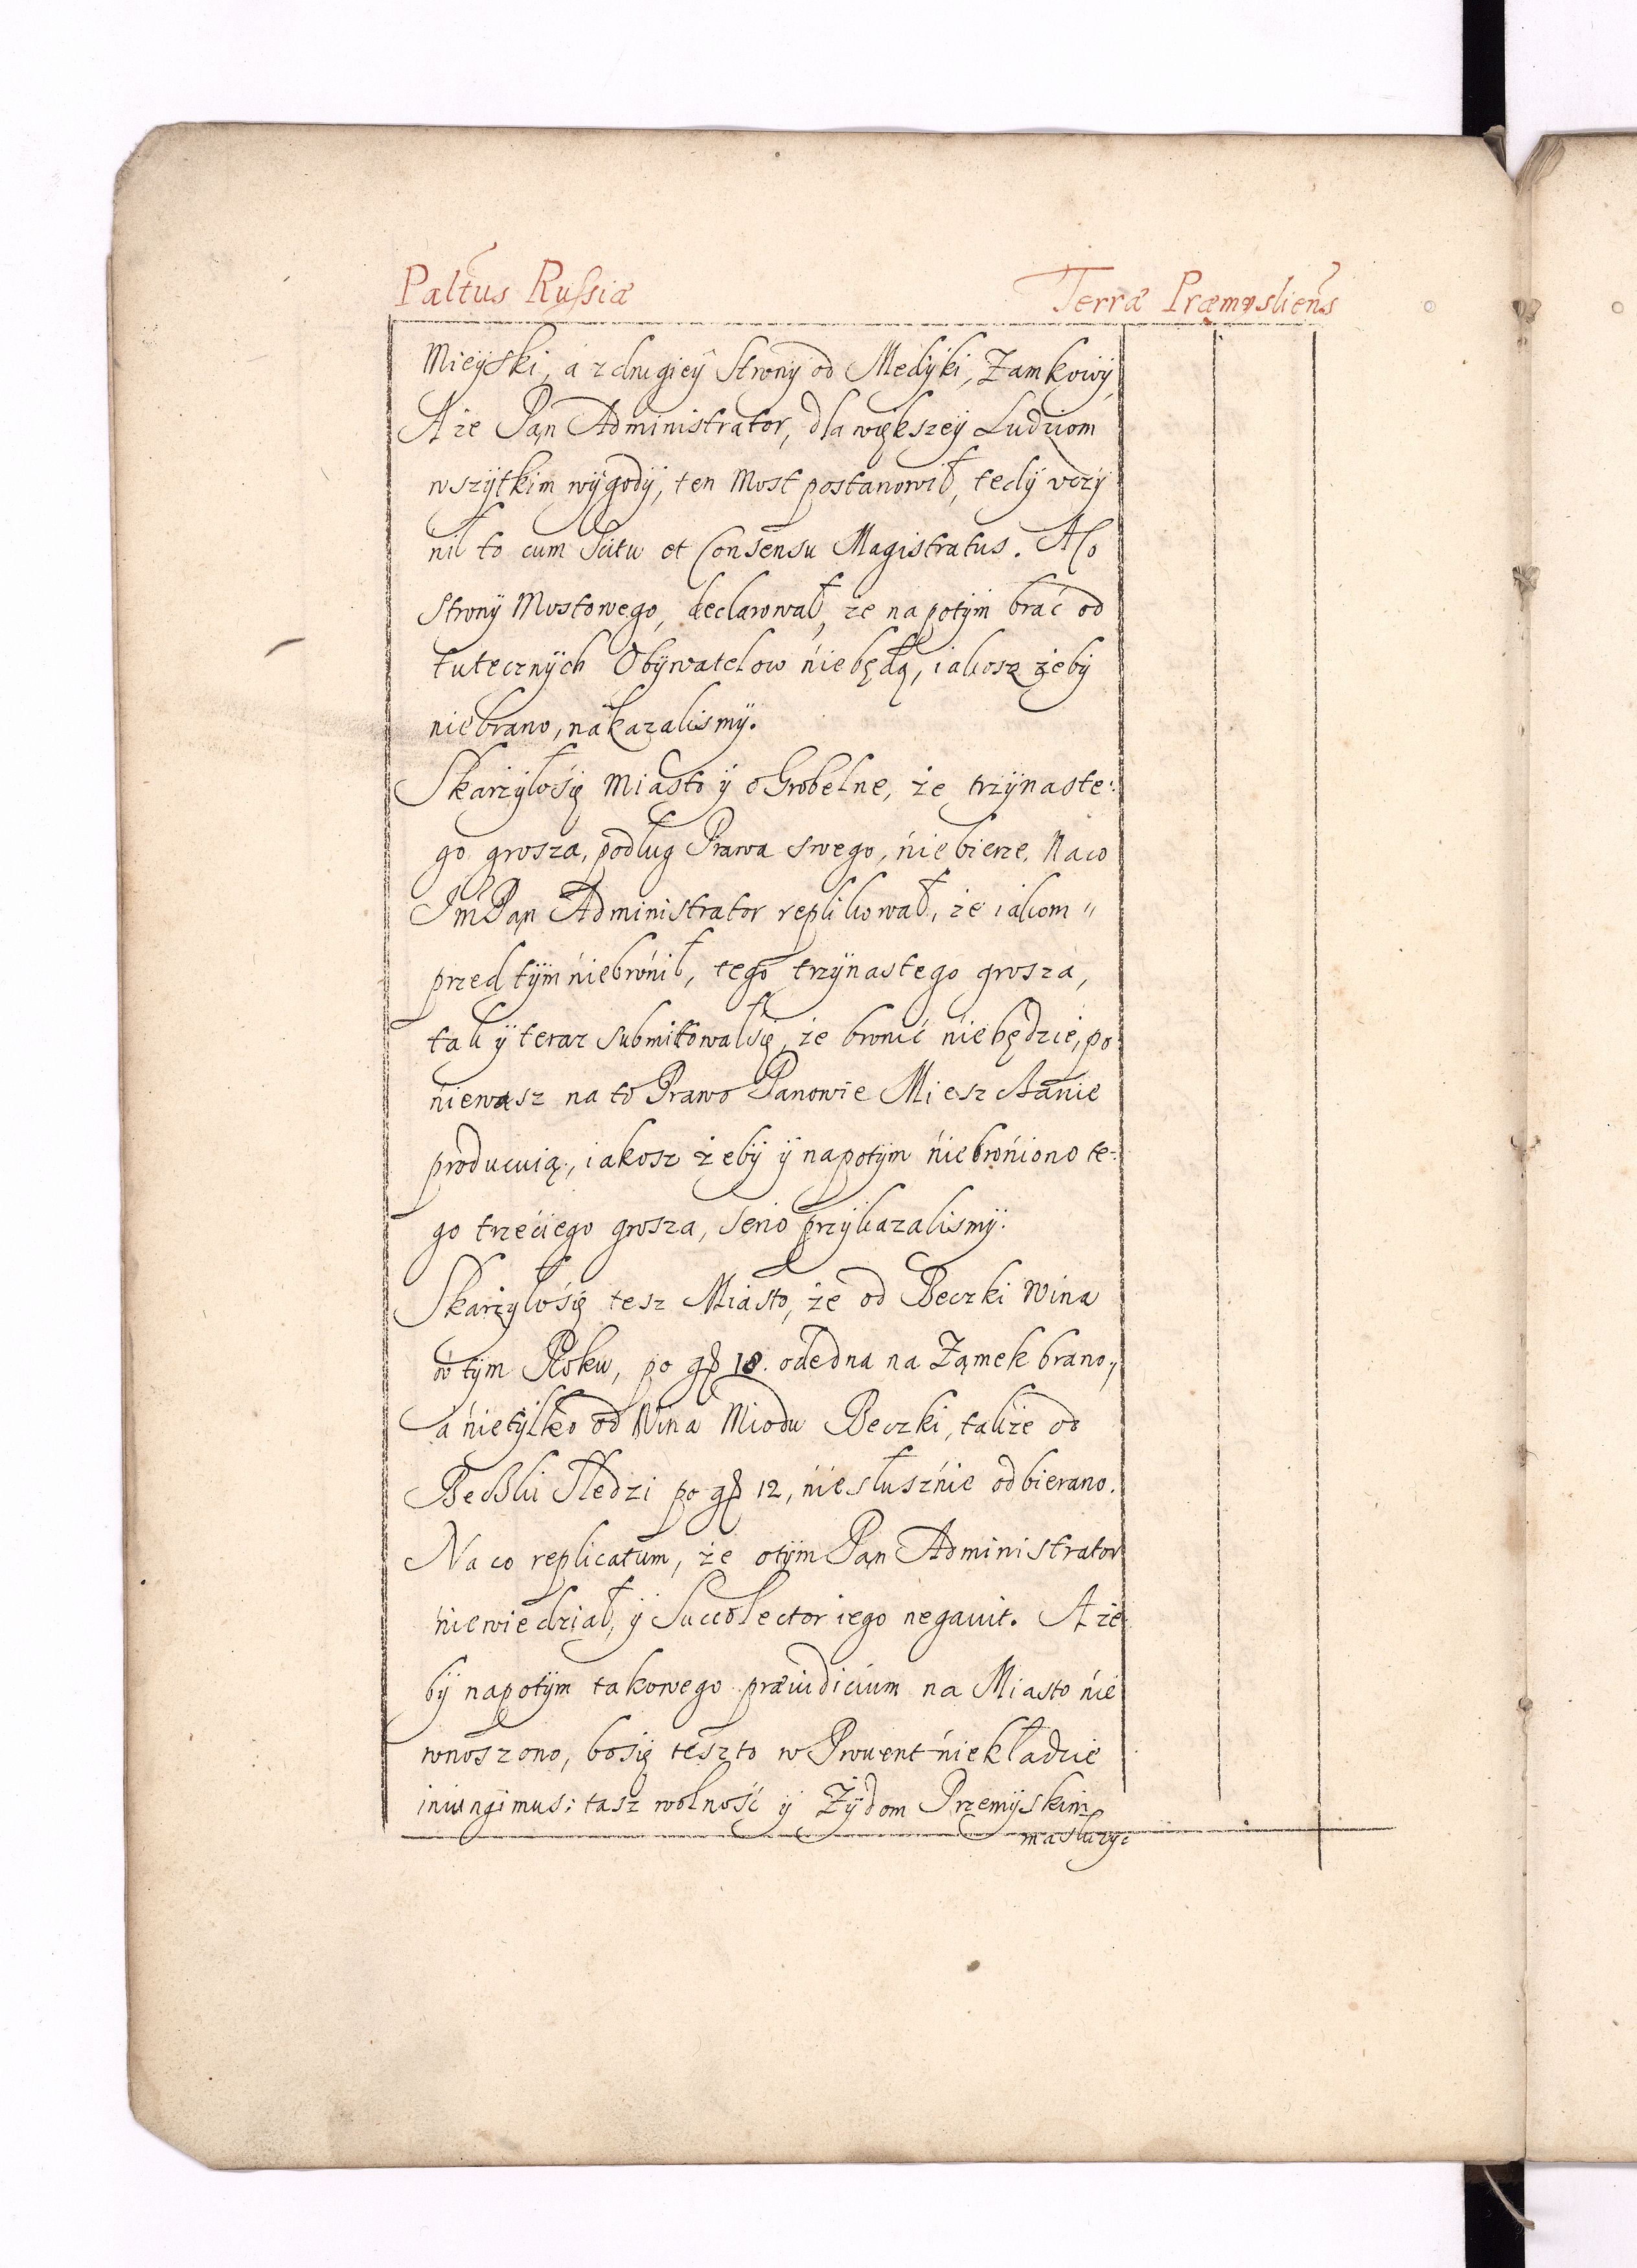 Paltus Russiæ
Terræ Præmysliens
Mieyski, a z drugiey Strony od Medyki, Zamkowy,
A że Pan Administrator, dla większey Ludziom
wszytkim wygody, ten Most postanowił, tedy vczy
nił to cum Scitu et Consensu Magistratus. A co
Strony Mostowego, declarował, że na potym brać od
tutecznych Obywatelow niebędą, iakosz żeby
niebrano, nakazalismy.
Skarzyłosię Miasto y o Grobelne, że trzynaste:
go grosza, podług Prawa swego, niebierze. Naco
Jm Pan Administrator replikował, że iakom "
przed tym niebronił, tego trzynastego grosza,
tak y teraz submitowałsię, że bronić niebędzie, po:
niewasz na to Prawo Panowie Mieszczanie
producuią, iakosz żeby y napotym niebroniono te:
go trzeciego grosza, serio przykazalismy.
Skarżyłosię tesz Miasto, że od Beczki Wina
w tym Roku, po gß 18. odedna na Zamek brano,
a nietylko od Wina Miodu Beczki, także od
Beczki Sledzi po gß 12, niesłusznie odbierano.
Na co replicatum, że otym Pan Administrator
niewiedział, y Succolector iego negauit. A że
by napotym takowego præiudicium na Miasto nie
wnoszono, bosię teszto w Prouent niekładzie
iniungimus: tasz wolność y Żydom Przemyskim
masłuzyc